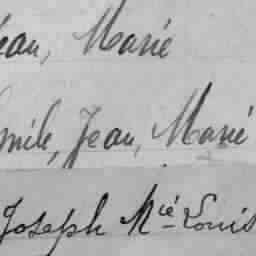 Jean, Marie
Emile, Jean, Marie
Joseph Mie Louis